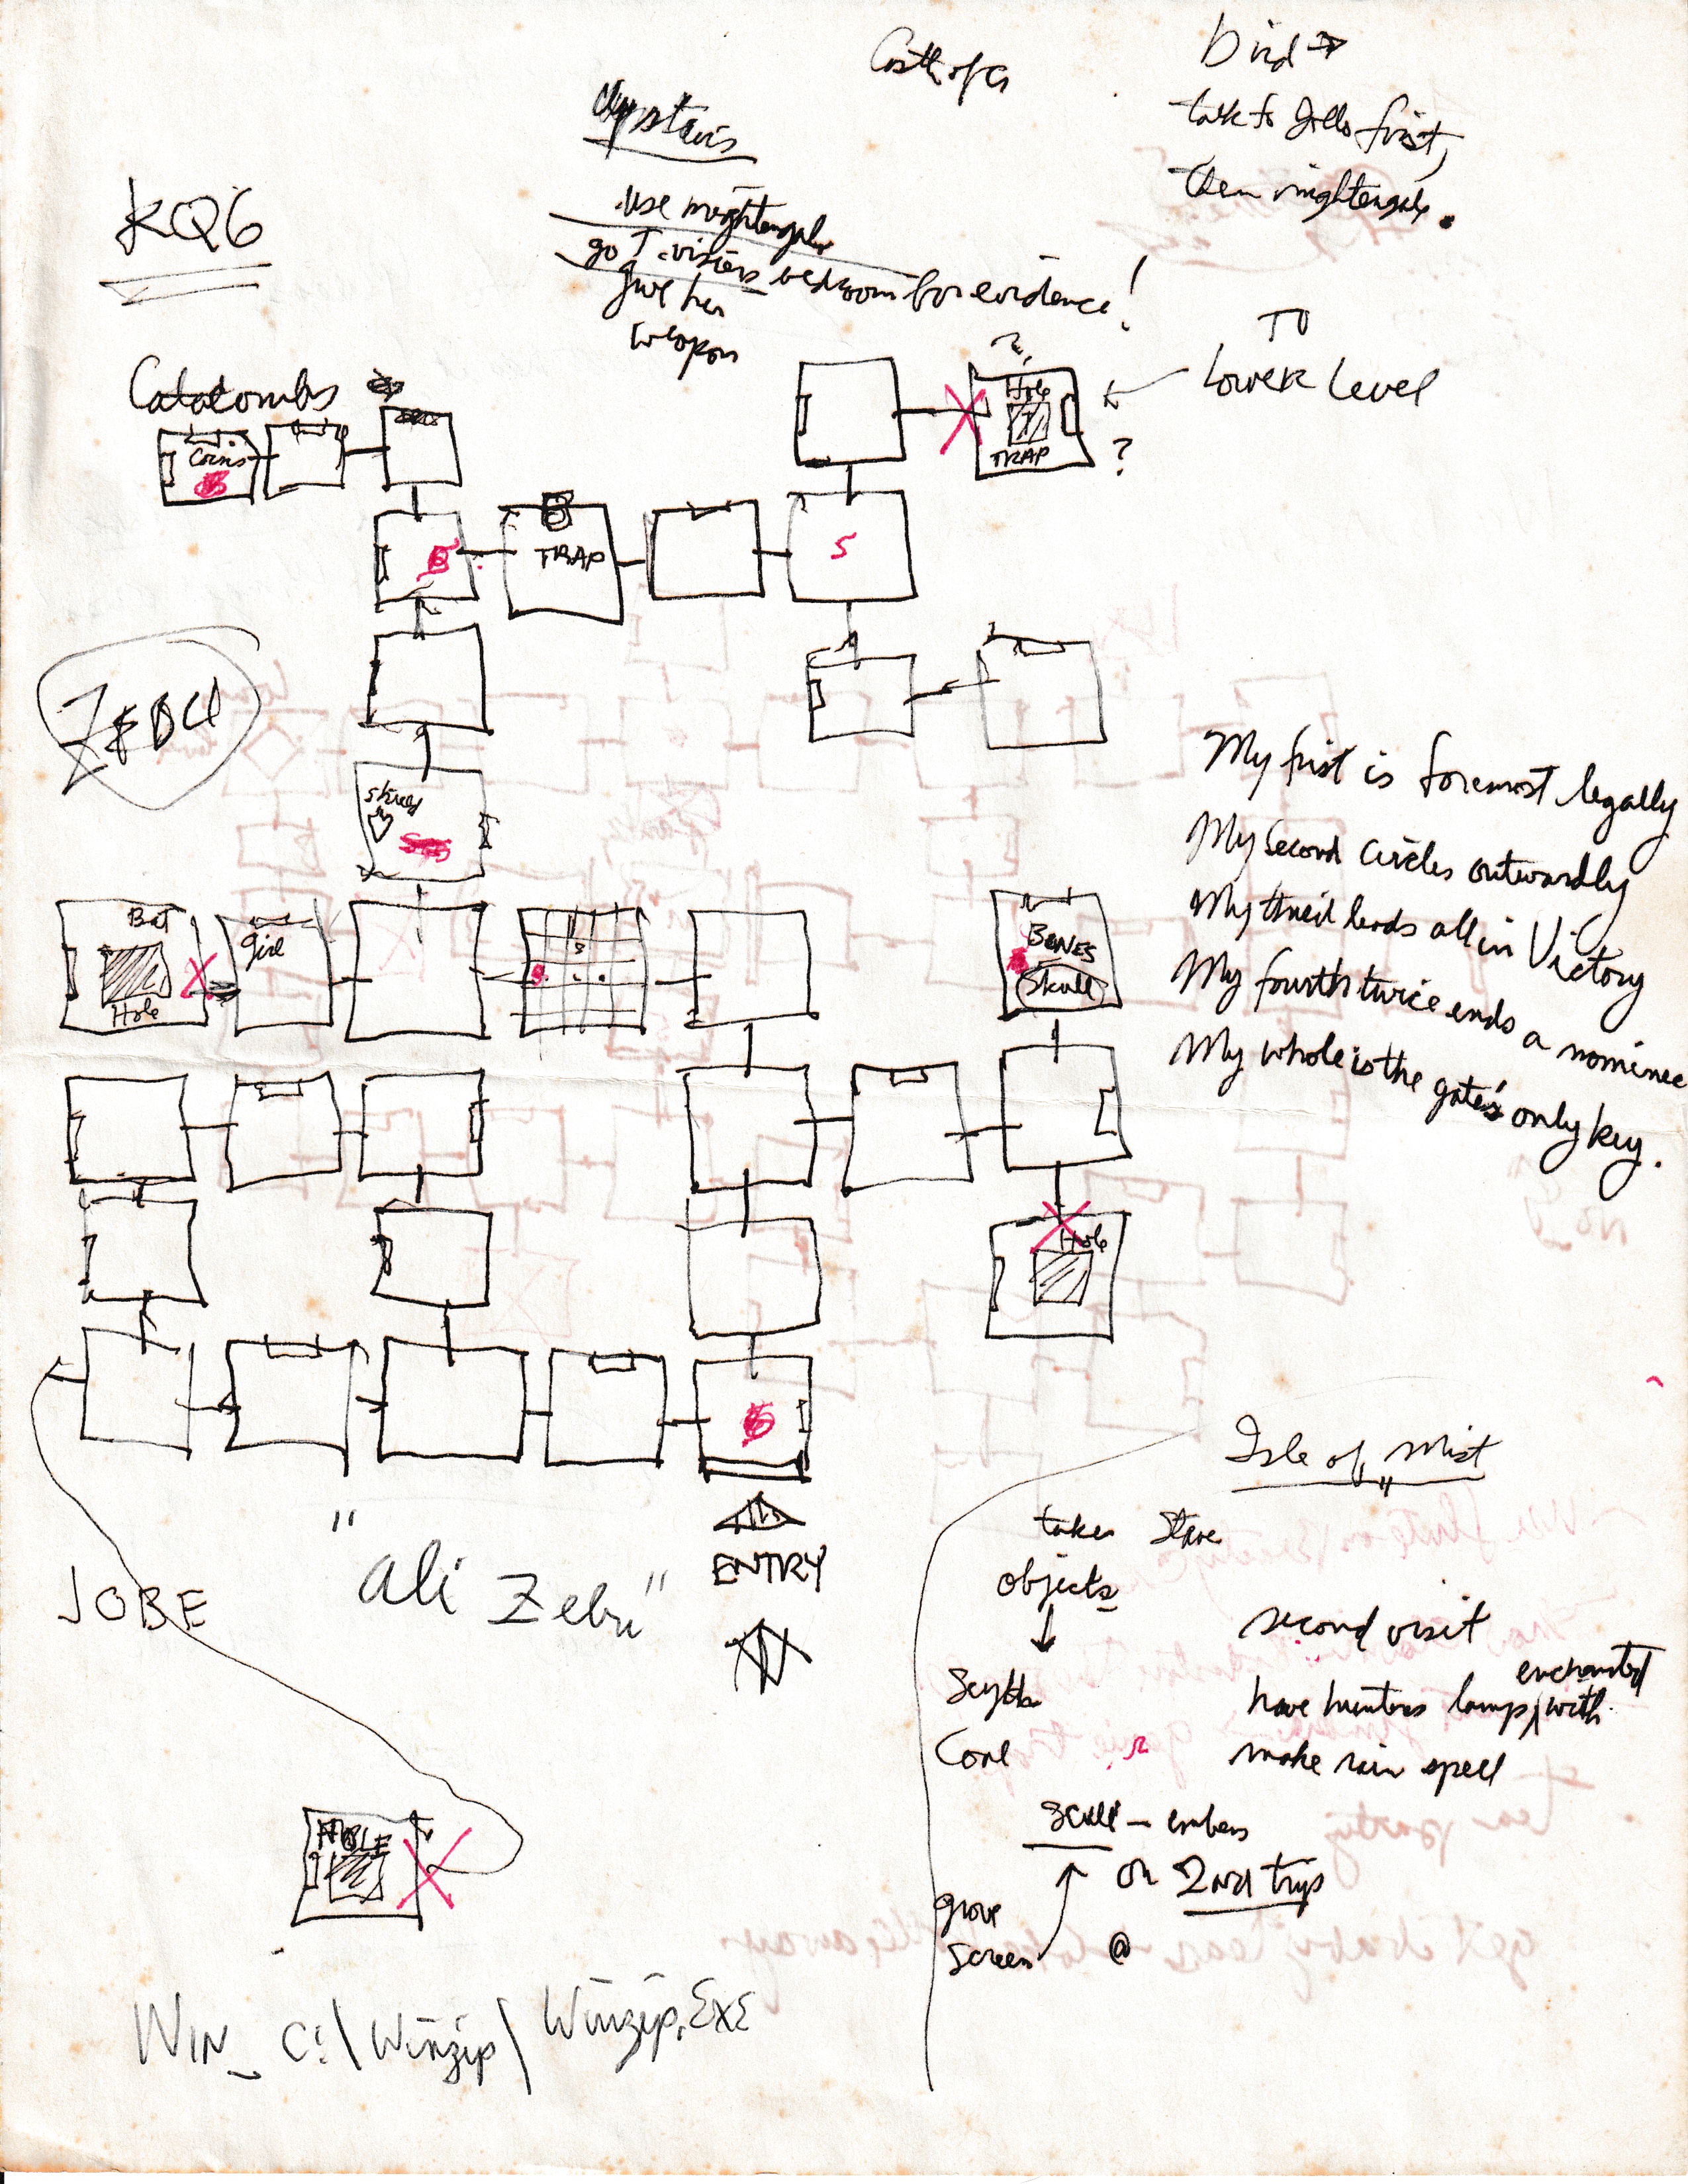 Castle of
Bird →
talk to Jollo first,
then nightengale.
Upstairs
use nightengale
go T. visiers bedroom for evidence!
give her
weapon
KQ6
TO
Lower Level
?
Hole
TRAP
?
Catacombs
Coins
TRAP
5
ZEBU
shield
My first is foremost legally
My second circles outwardly
My third leads all in Victory
My fourth twice ends a nominee
My whole is the gate's only key.
Bat
Hole
girl
BONES
Skull
Hole
ENTRY
"Ali Zebu"
JOBE
HOLE
Isle of Mist
takes
objects
↓
Scythe
Coal
second visit
have hunters lamp, with enchanted
make rain spell
Skull - embers
on 2nd trip
grove
screen
@
WIN_ C:\Winzip\Winzip.EXE